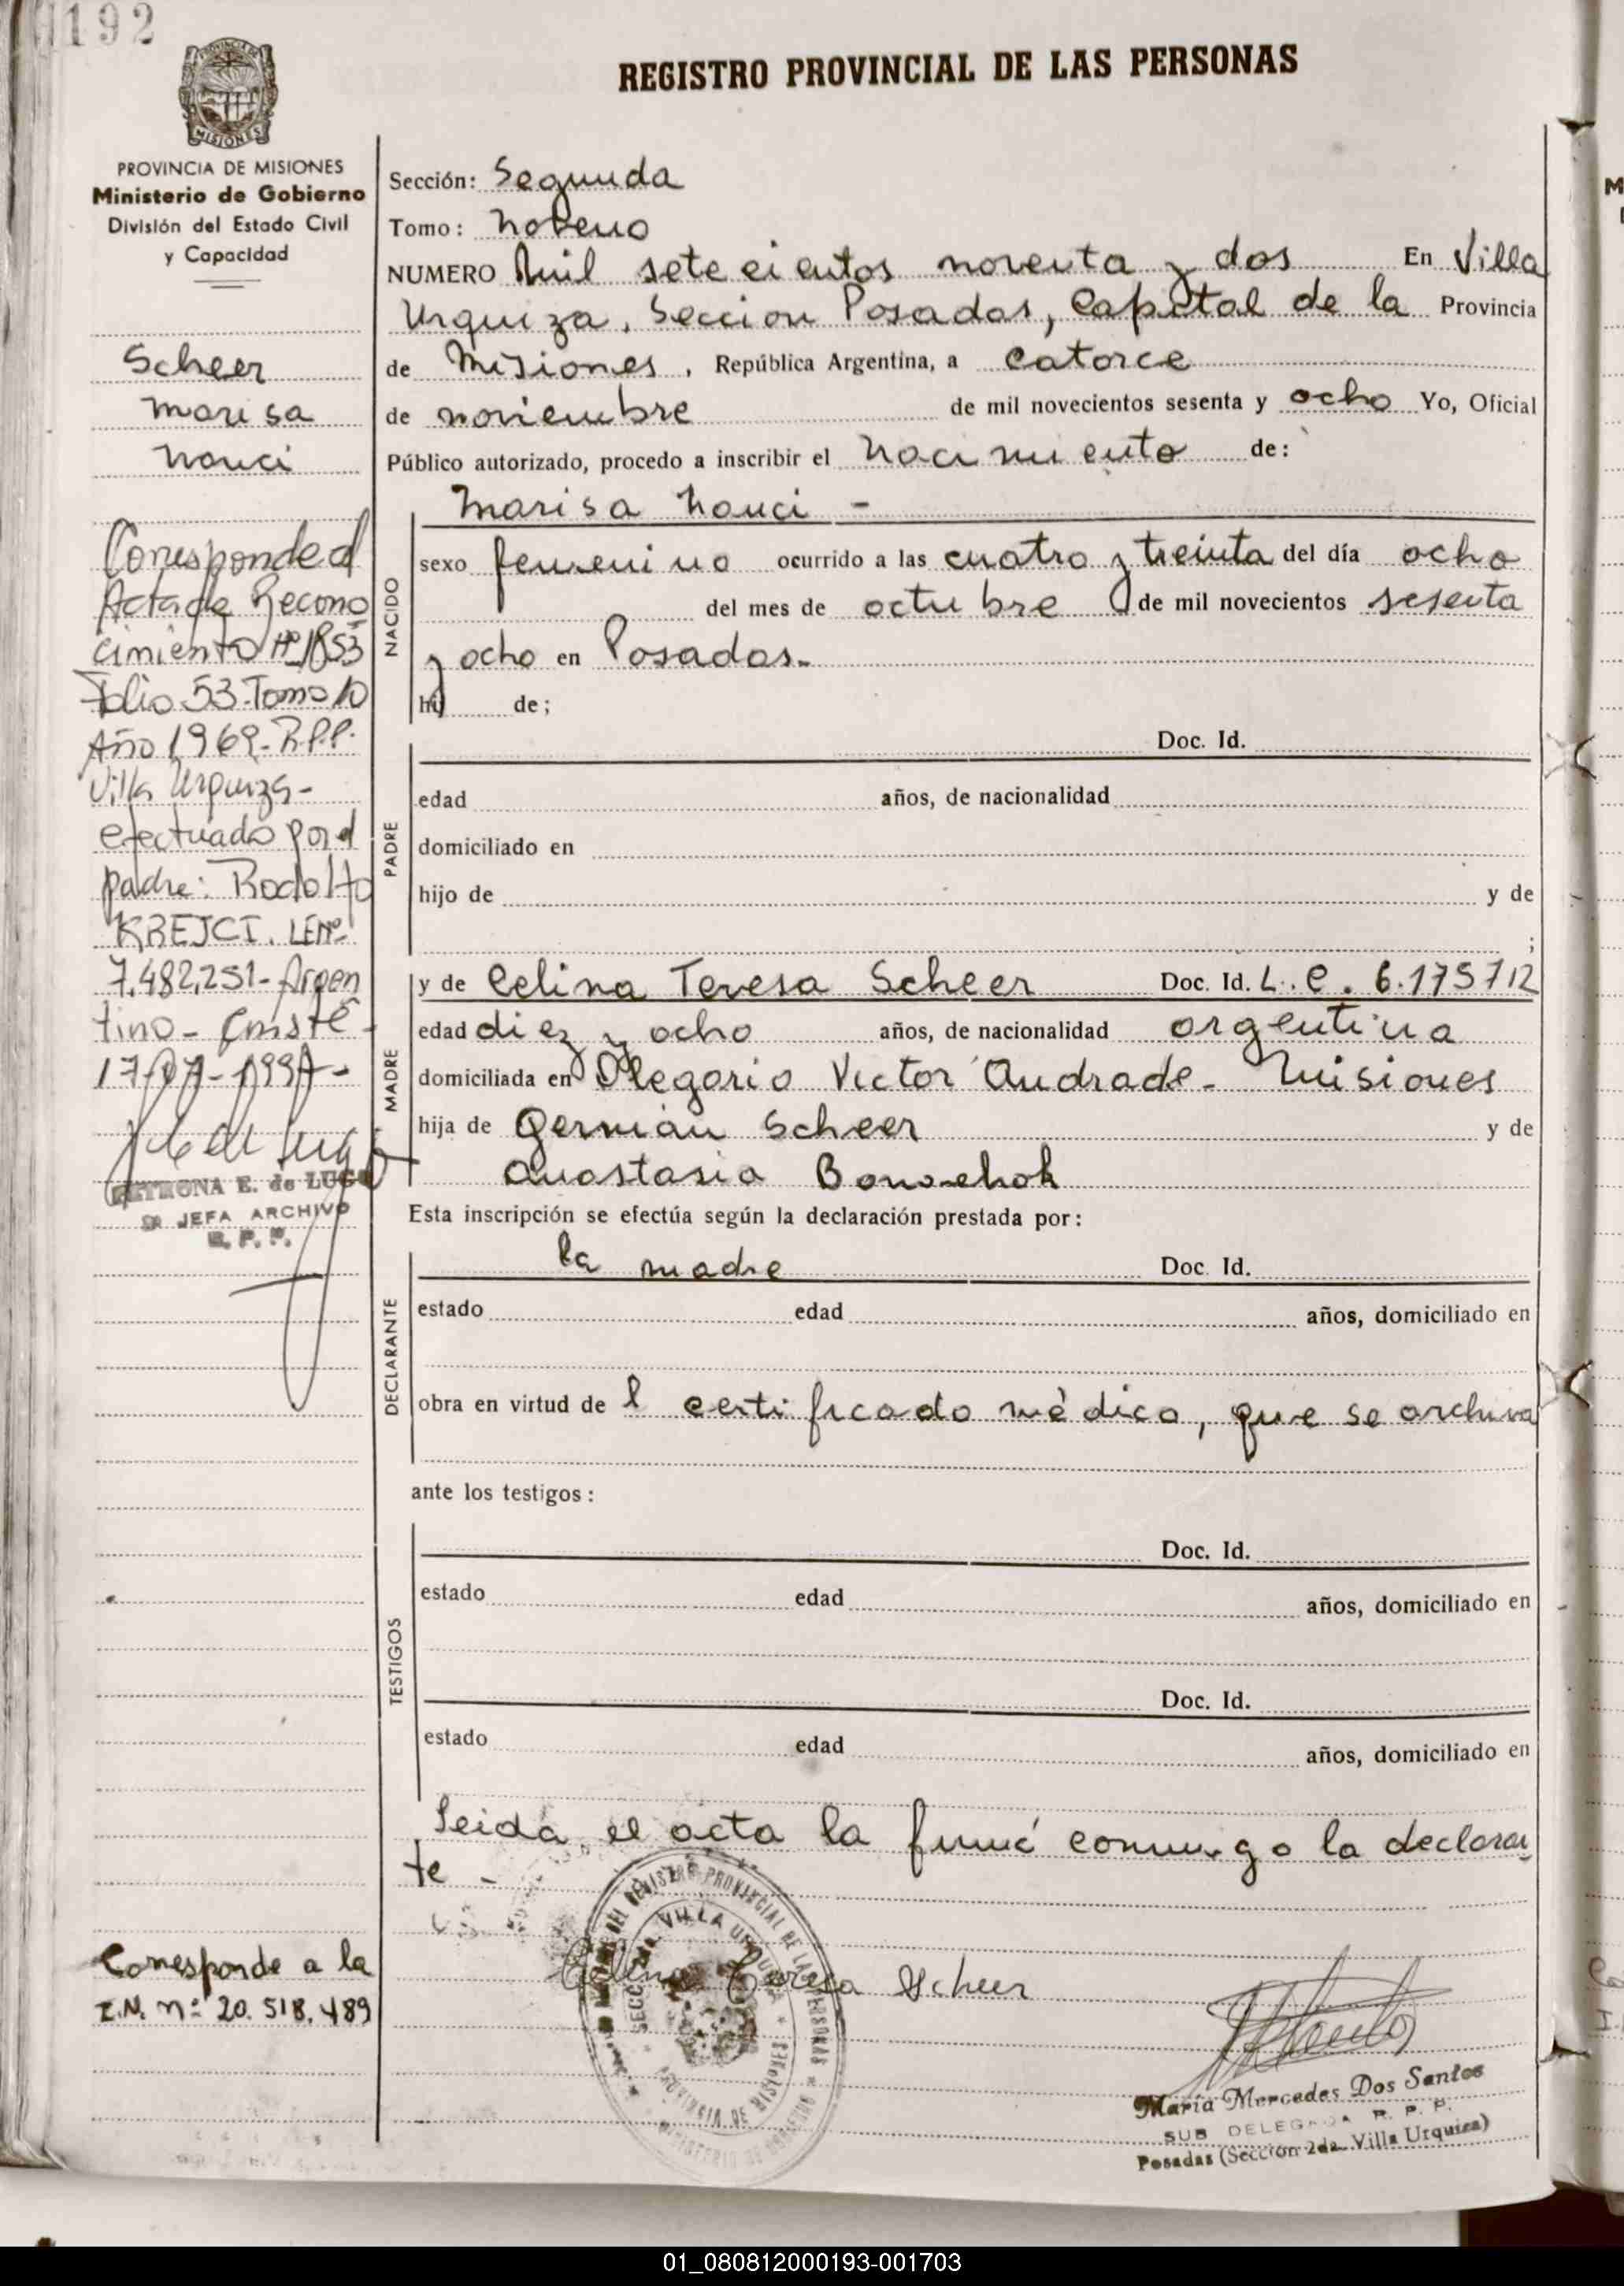 192
REGISTRO PROVINCIAL DE LAS PERSONAS
PROVINCIA DE MISIONES
MISIONES
PROVINCIA DE MISIONES
Ministerio de Gobierno
División del Estado Civil
y Capacidad
Scheer
Marisa
Nanci
Corresponde al
Acta de Recono
cimiento Nº 1853
Folio 53-Tomo 10
Año 1969-R.P.P.
Villa Urquiza-
efectuado por el
padre: Rodolfo
KREJCI. LENº
7.482.251-Argen
tino-
17-07-1997-
PETRONA E. de LUGO
JEFA ARCHIVO
R. P. P.
Corresponde a la
I.N. nº 20.518.489
Sección: Segunda
Tomo: Noveno
NUMERO Mil setecientos noventa y dos En Villa
Urquiza, Seccion Posadas, Capital de la Provincia
de Misiones, República Argentina, a catorce
de noviembre de mil novecientos sesenta y ocho Yo, Oficial
Público autorizado, procedo a inscribir el Nacimiento de:
Marisa Nanci -
NACIDO
sexo femenino ocurrido a las cuatro y treinta del día ocho
del mes de octubre de mil novecientos sesenta
y ocho en Posadas.
hij de;
PADRE
Doc. Id.
edad años, de nacionalidad
domiciliado en
hijo de y de
;
MADRE
y de Celina Teresa Scheer Doc. Id. L.C. 6.175712
edad diez y ocho años, de nacionalidad argentina
domiciliada en Olegario Victor Andrade- Misiones
hija de German Scheer y de
Anastasia
Esta inscripción se efectúa según la declaración prestada por:
DECLARANTE
la madre Doc. Id.
estado edad años, domiciliado en
obra en virtud de l certificado médico, que se archiva
ante los testigos:
TESTIGOS
Doc. Id.
estado edad años, domiciliado en
Doc. Id.
estado edad años, domiciliado en
Leida el acta la firmó conmigo la declaran
te -
Celina Teresa Scheer
REGISTRO PROVINCIAL DE LAS PERSONAS
VILLA URQUIZA
María Mercedes Dos Santos
SUB DELEGADA R. P. P.
Posadas (Sección 2da. Villa Urquiza)
01_080812000193-001703